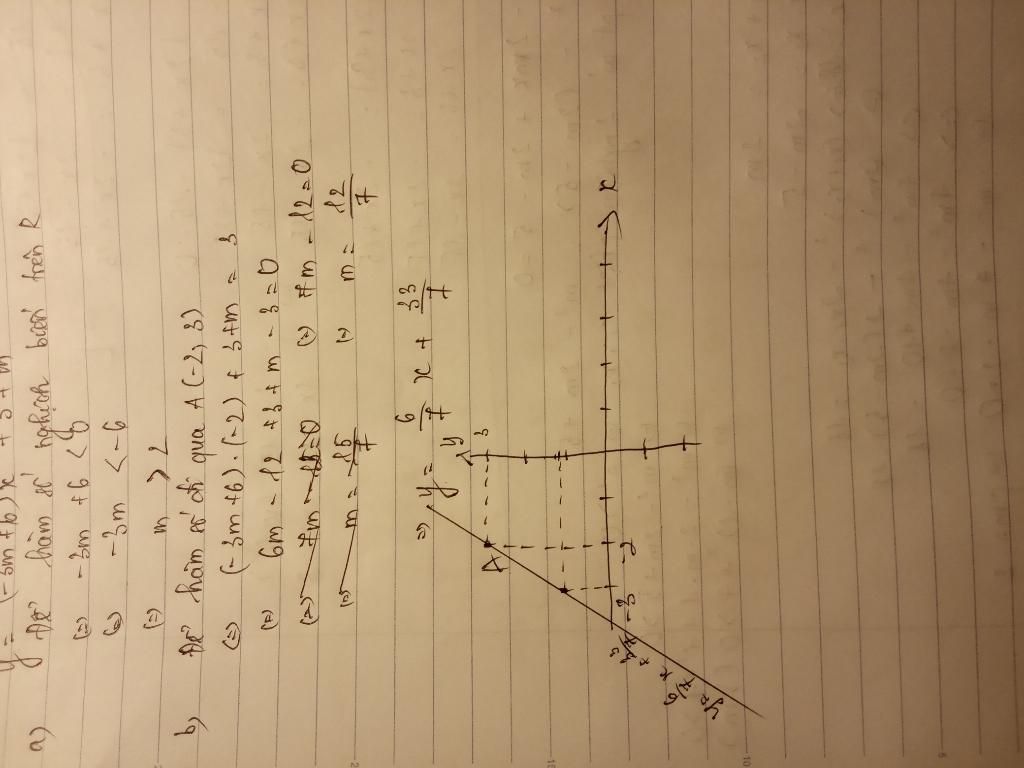 y = (-3m+6)x + 3 + m
a) Để hàm số nghịch biến trên R
(=) -3m + 6 < 0
(=) -3m < -6
(=) m > 2
b) Để hàm số đi qua A(-2, 3)
(=) (-3m+6).(-2) + 3+m = 3
(=) 6m - 12 + 3 + m - 3 = 0
(=) 7m - 15 = 0 (=) 7m - 12 = 0
(=) m = 15/7 (=) m = 12/7
=) y = 6/7 x + 33/7
y
3
A
x
-3 -2